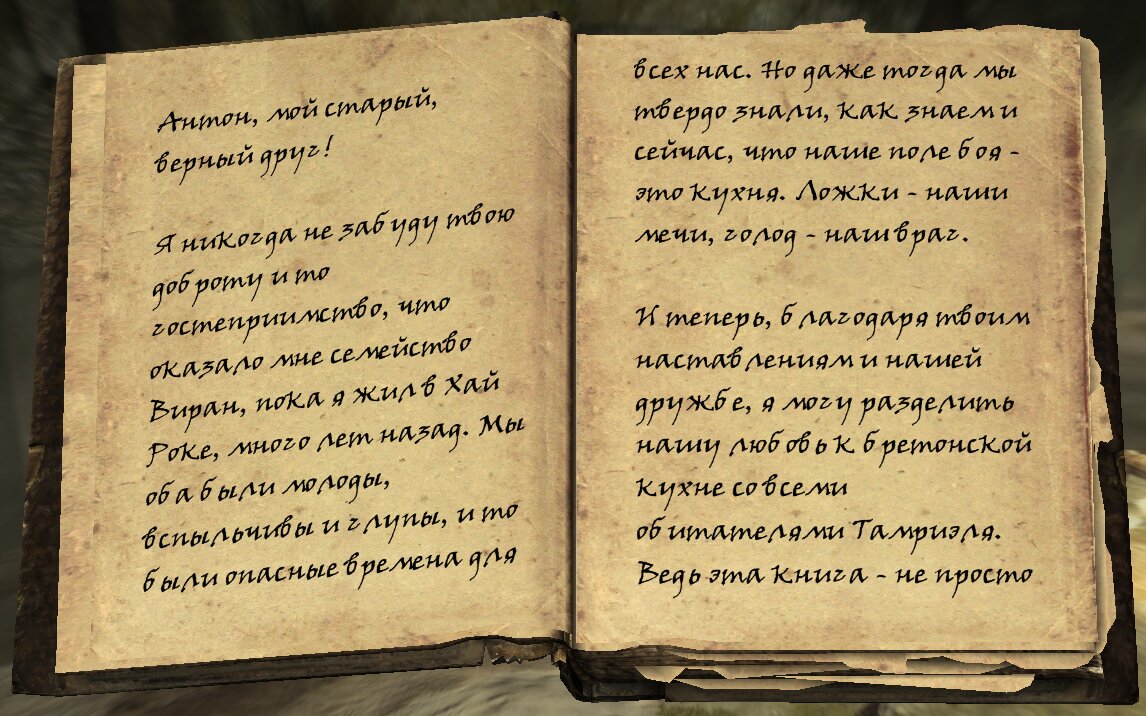 Антон, мой старый,
верный друг!
Я никогда не забуду твою
доброту и то
гостеприимство, что
оказало мне семейство
Виран, пока я жил в Хай
Роке, много лет назад. Мы
оба были молоды,
вспыльчивы и глупы, и то
были опасные времена для
всех нас. Но даже тогда мы
твердо знали, как знаем и
сейчас, что наше поле боя -
это кухня. Ложки - наши
мечи, голод - наш враг.
И теперь, благодаря твоим
наставлениям и нашей
дружбе, я могу разделить
нашу любовь к бретонской
кухне со всеми
обитателями Тамриэля.
Ведь эта книга - не просто